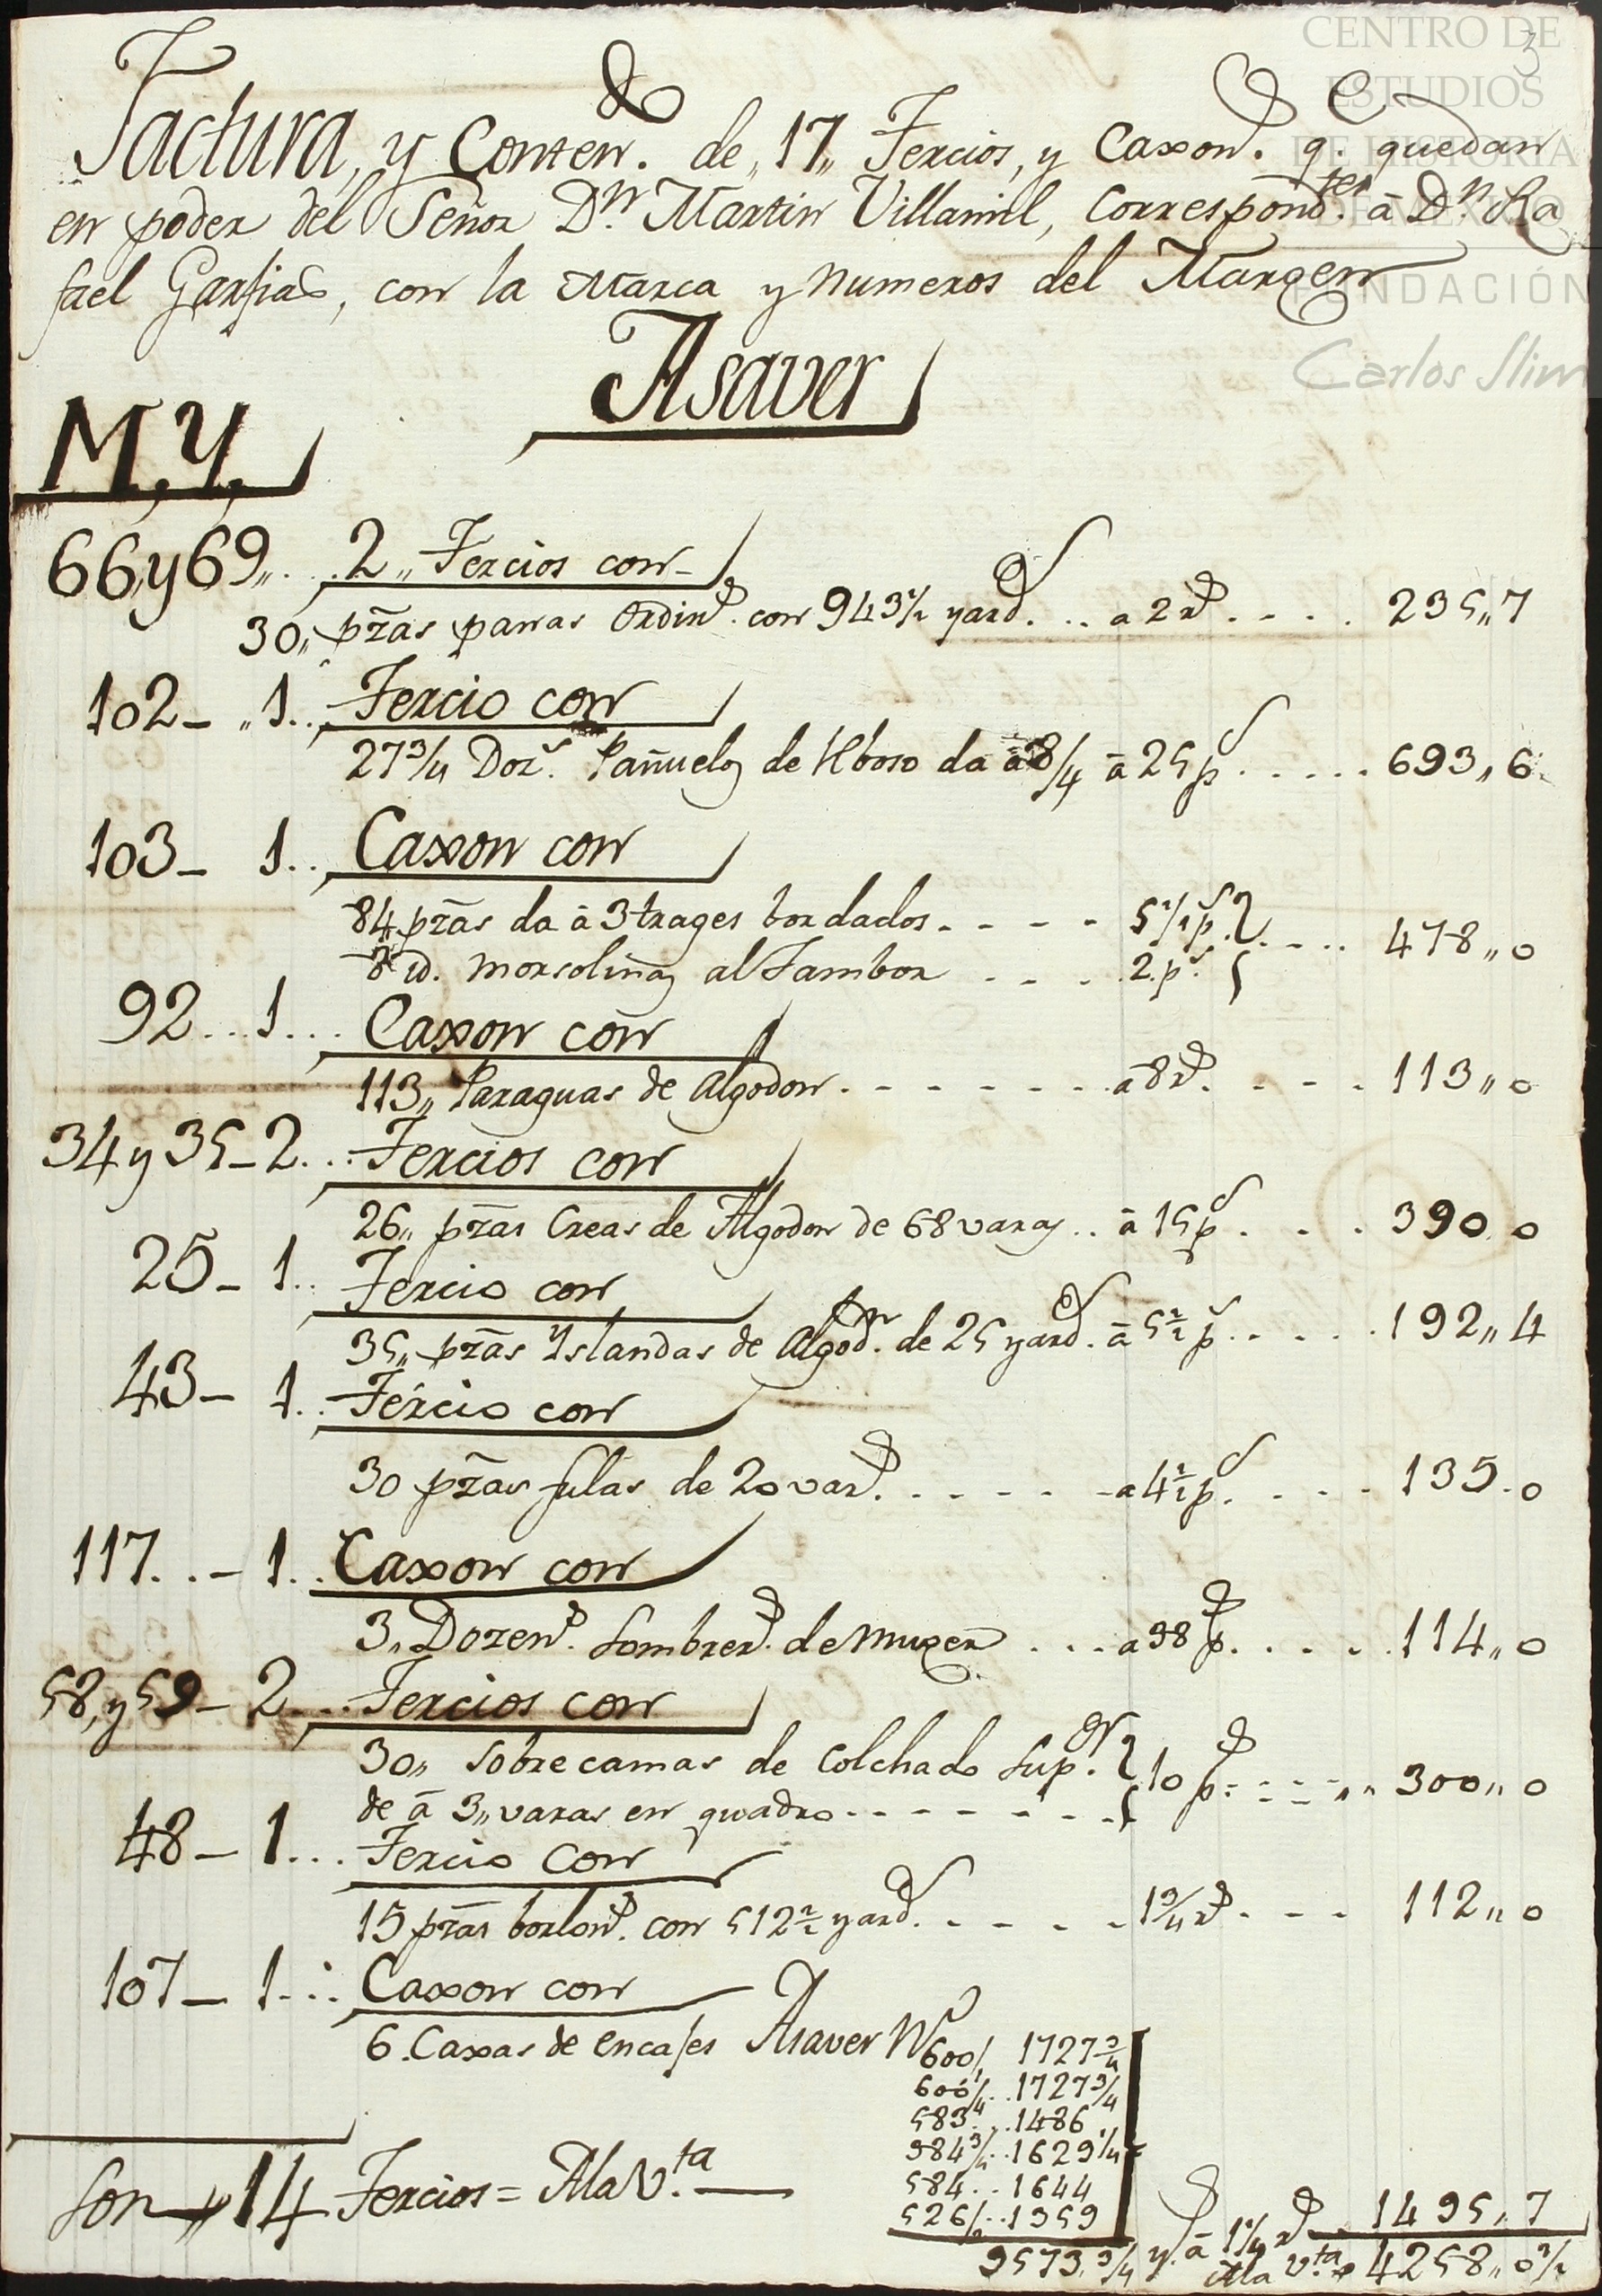 CENTRO DE
ESTUDIOS
DE HISTORIA
DE MÉXICO
FUNDACIÓN
Carlos Slim
3
Factura, y Conten.do de,,17,, Tercios, y Caxon.s q.e quedan
en poder del Señor D.n Martin Villamil, Correspond.tes â D.n Ra
fael Garfias, con la Marca y numeros del Margen
Asaver
M,Y,
66,y69,,... 2,, Tercios con
30,, pzãs panas Ordin.s con 943½ yard.s ... a 2 r.s .... 235,,7
102- ,,1.. Tercio con
27¾ Doz.s Pañuelos de Rboso da â 8/4 â 25 p.s ..... 693,,6
103- 1.. Caxon con
84 pzãs da â 3 trages bordados. - - - - 5½ p.s
8 id. morsolinas al Tambor - - - . 2.p.s .... 478,,0
92...1... Caxon con
113,, Paraguas de Algodon. - - - - - - . a 8 r.s - - - . 113,,0
34 y 35-2... Tercios con
26,, pzãs Creas de Algodon de 68 varas .. â 15 p.s . - . 390.0
25- 1.. Tercio con
35,, pzãs Yslandas de Algod.n de 25 yard.s â 5½ p.s ..... 192,,4
43- 1.. Tercio con
30 pzãs fulas de 20 var.s - - - - - a 4½ p.s . - - - 135.0
117..- 1.. Caxon con
3,, Dozen.s Sombrer.s de muger ... a 38 p.s ..... 114,,0
58,y59- 2... Tercios con
30,, Sobrecamas de Colchado Sup.or
de â 3,, varas en quadro - - - - - - 10 p.s - - - - 300,,0
48- 1... Tercio Con
15 pzãs borlon.s con 512½ yard.s - - - - 1¾ r.s - - - 112,,0
107- 1-.: Caxon con
6. Caxas de encajes Asaver N.s
600/ 1727¾
600/4..1727¾
583...1486
584¾..1629¼
584..1644
526½..1359
9573,¾ y.s â 1¼ r.s 1495,,7
Son 14 Tercios = Ala V.ta
Ala V.ta 4258,,0½